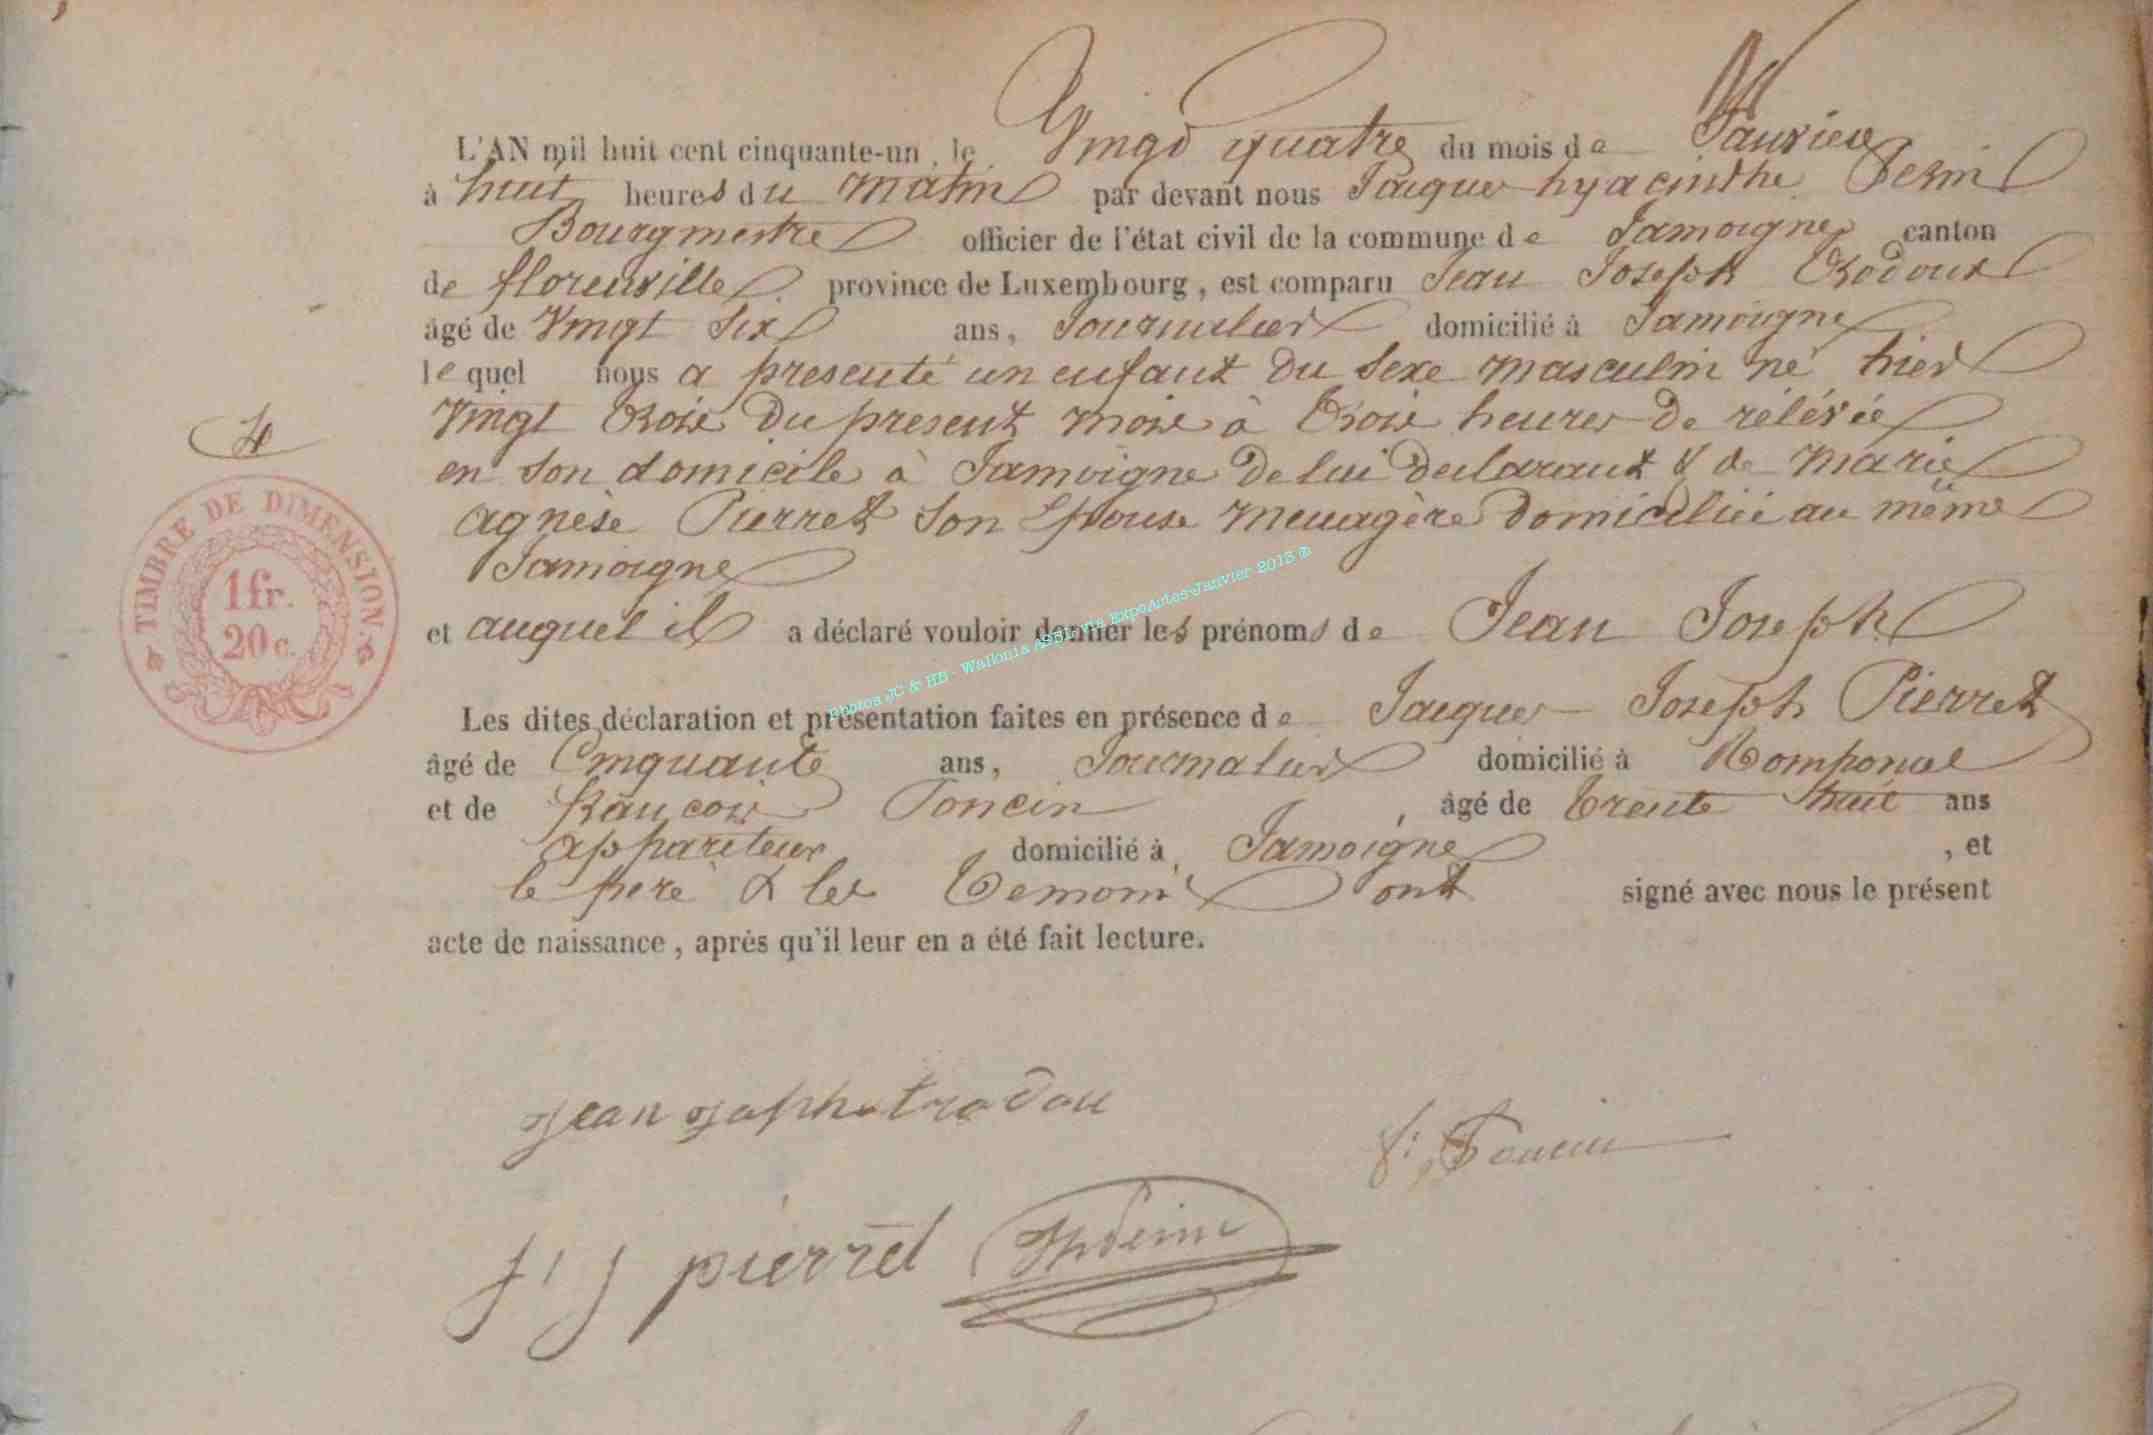 L'AN mil huit cent cinquante-un, le Vingt quatre du mois de Janvier
à huit heures du matin par devant nous Jacques hyacinthe Perin
Bourgmestre officier de l'état civil de la commune de Jamoigne canton
de florenville province de Luxembourg, est comparu Jean Joseph Trodoux
âgé de Vingt Six ans, Journalier domicilié à Jamoigne
lequel nous a presenté un enfant du Sexe masculin né hier
Vingt Trois du present mois à Trois heures de rélévée
en Son domicile à Jamoigne de lui declarant & de Marie
agnèse Pierret Son Epouse menagère domiciliée au même
Jamoigne
et auquel il a déclaré vouloir donner les prénoms de Jean Joseph
Les dites déclaration et présentation faites en présence de Jacques Joseph Pierret
âgé de Cinquante ans, Journalier domicilié à Romponcel
et de francois Poncin, âgé de Trente huit ans
appariteur domicilié à Jamoigne, et
le pere & les Temoins ont signé avec nous le présent
acte de naissance, après qu'il leur en a été fait lecture.
4
TIMBRE DE DIMENSION.
1 fr.
20 c.
Photos JC & HB - Wallonia ASBL via ExpoActes Janvier 2013 ®
jean josphe trodou
f: Poncin
j j pierret